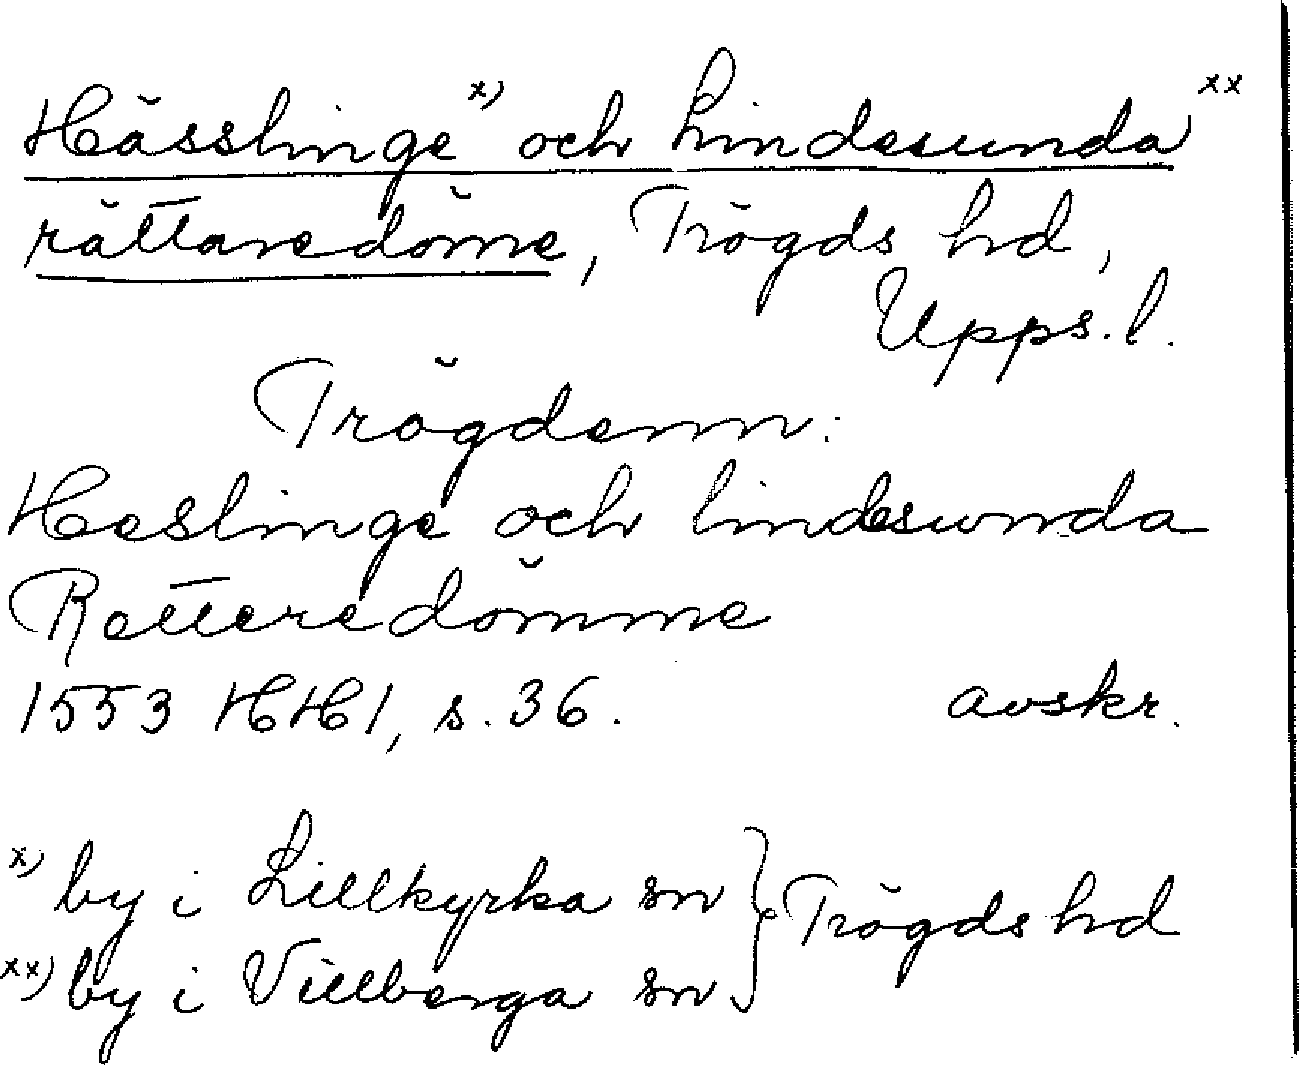 Hässlinge x) och Lindesunda xx
rättaredöme, Trögds hd,
Upps. l.
Trögdenn:
Heslinge och lindesunda
Retteredömme
1553 HH 1, s. 36. avskr.
x) by i Lillkyrka sn } Trögds hd
xx) by i Villberga sn